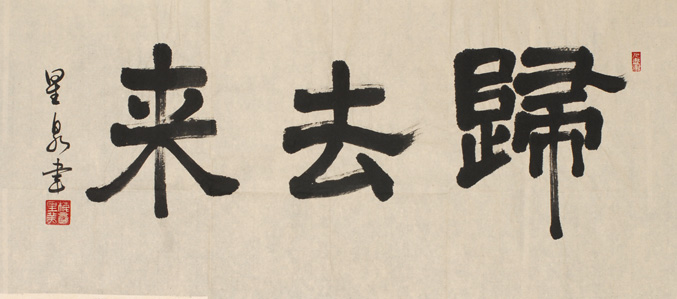 歸去来
星泉書